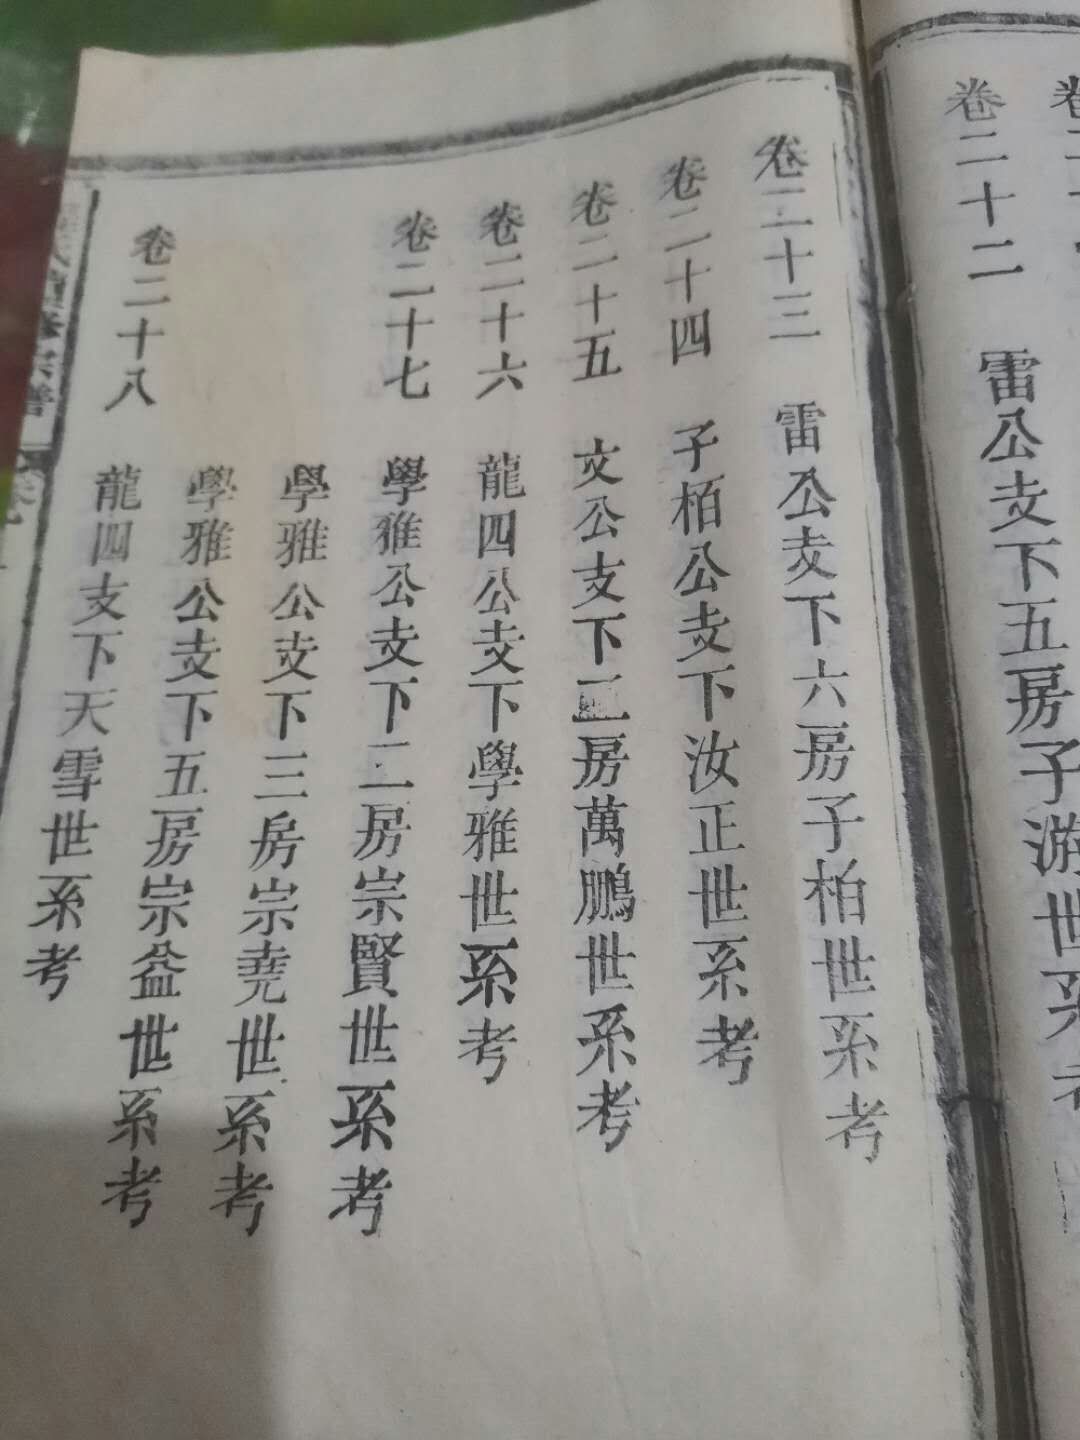 卷二十二 雷公支下五房子游世系考
卷二十三 雷公支下六房子柏世系考
卷二十四 子栢公支下汝正世系考
卷二十五 文公支下三房萬鵬世系考
卷二十六 龍四公支下學雅世系考
卷二十七 學雅公支下二房宗賢世系考
學雅公支下三房宗堯世系考
學雅公支下五房宗益世系考
卷二十八 龍四支下天雪世系考
修宗譜